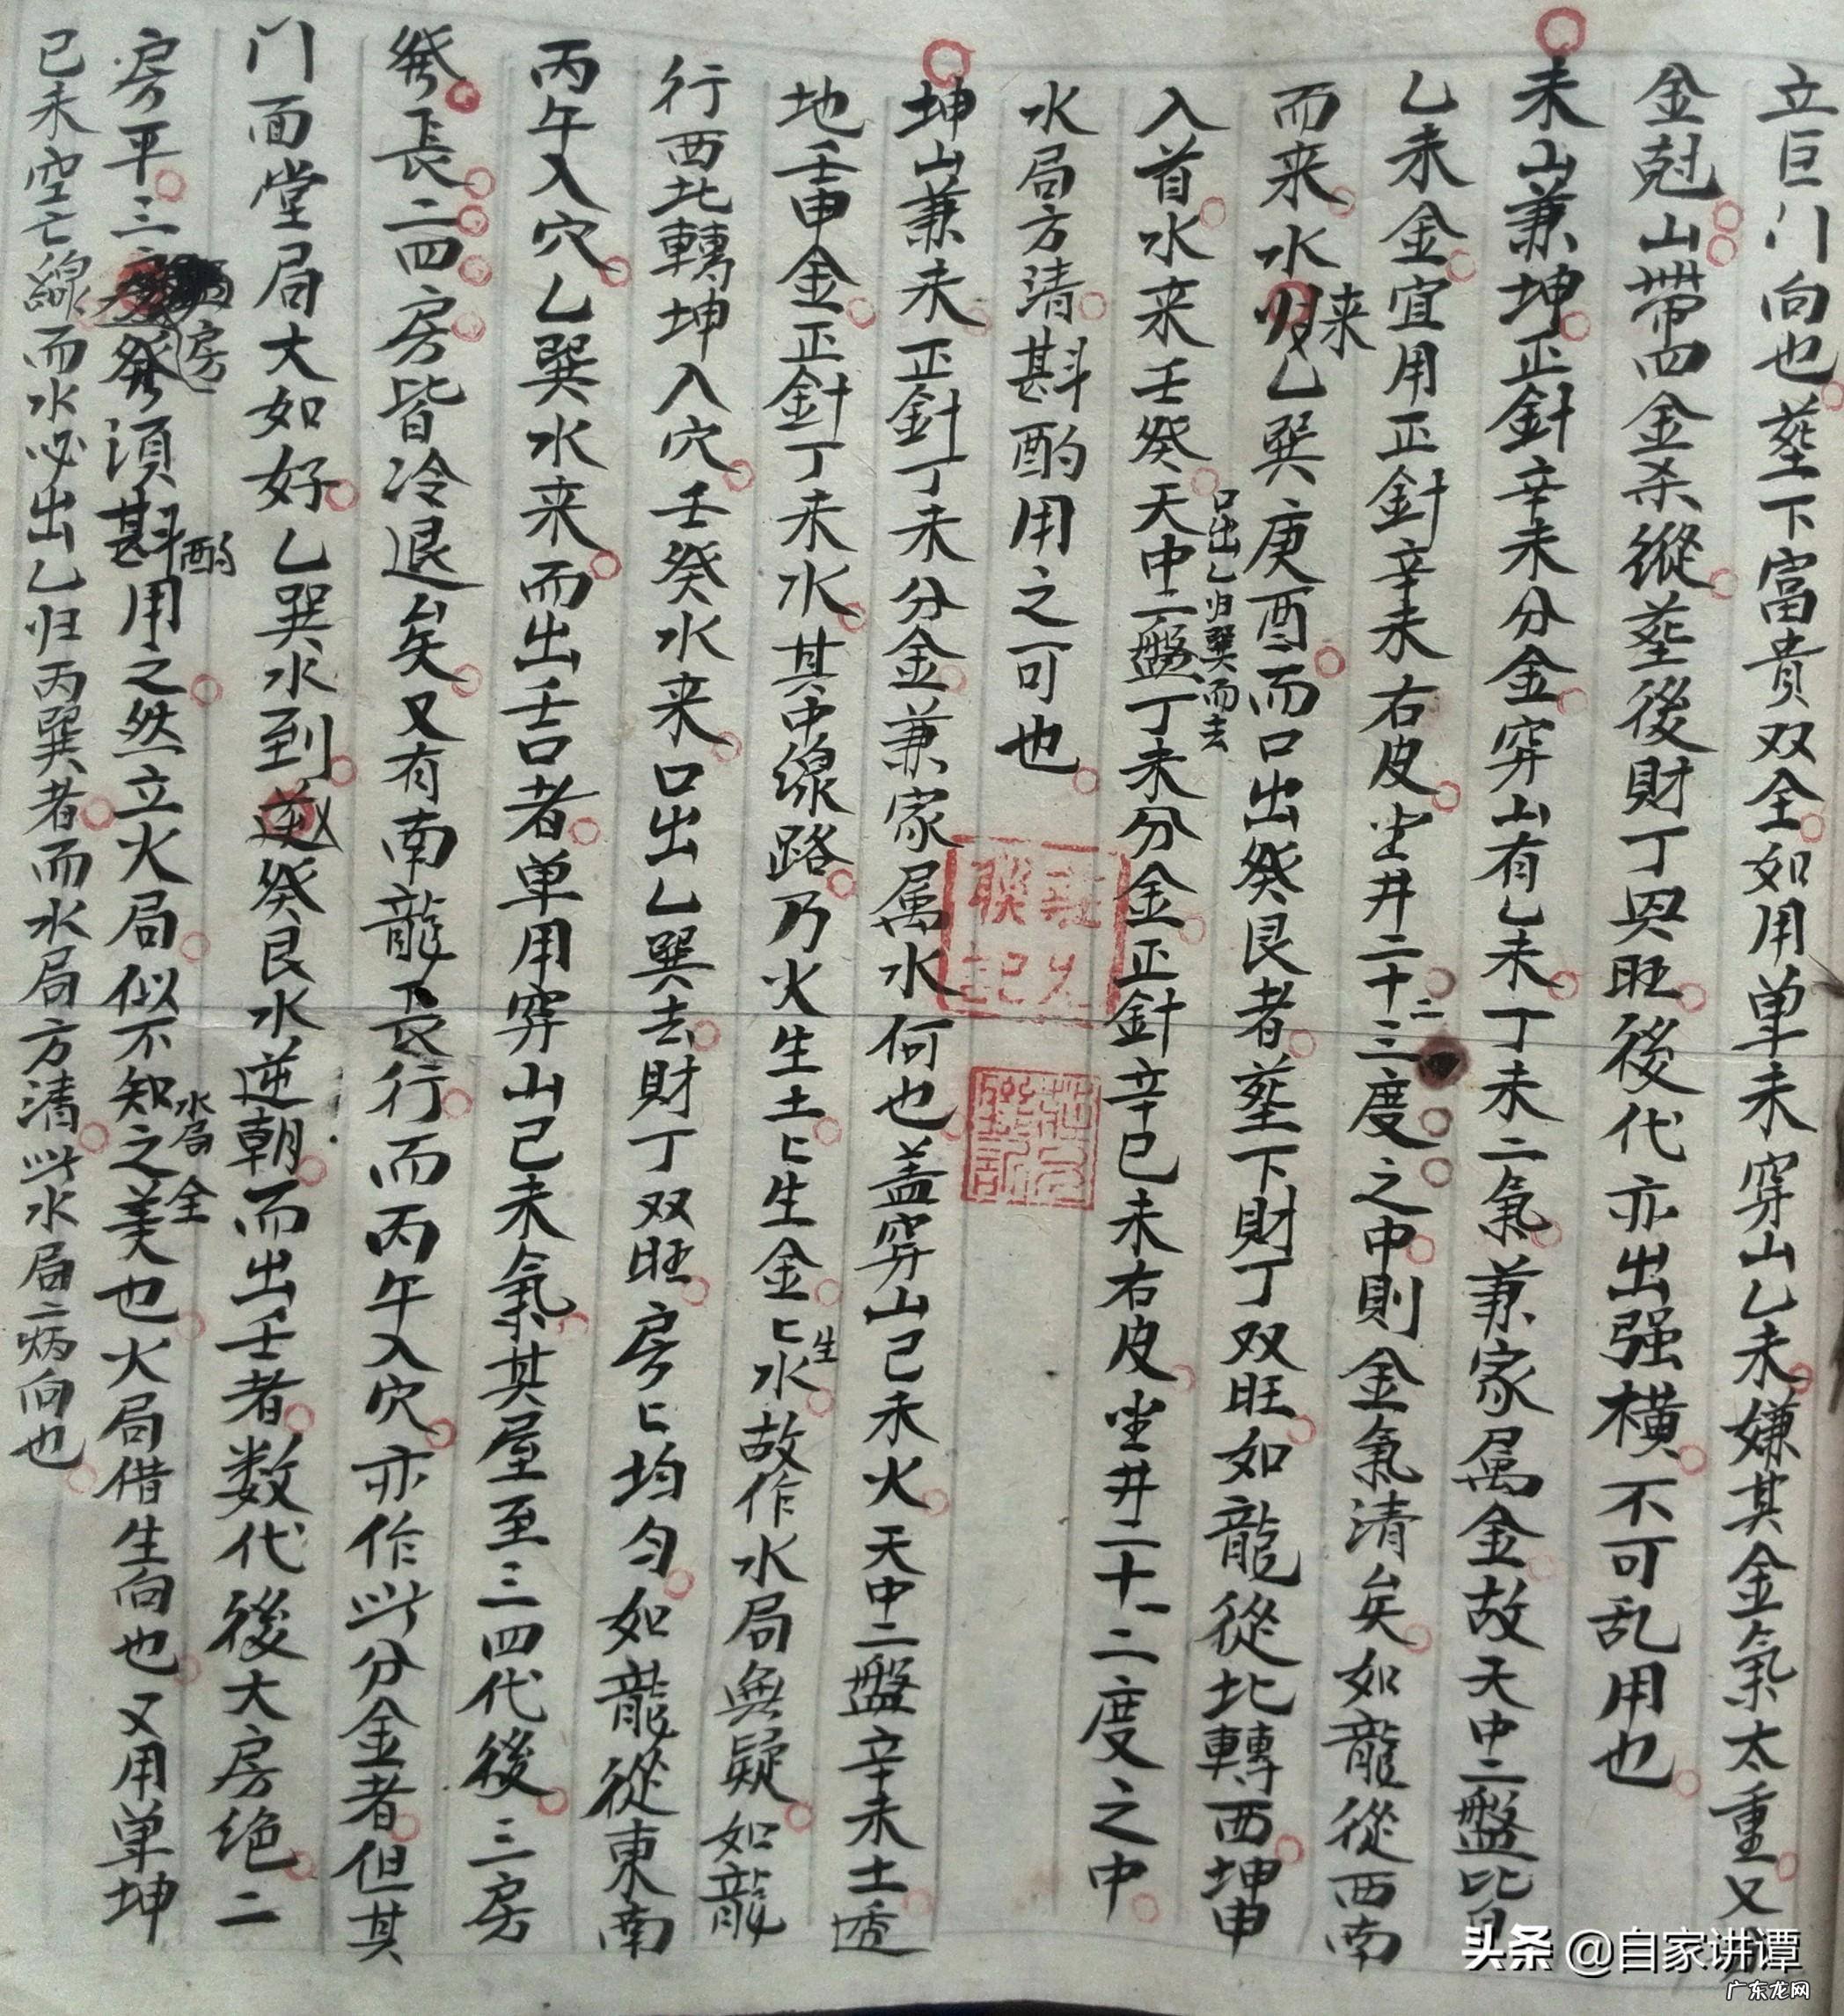 立巨门向也塟下富貴双全如用单未穿山乙未嫌其金氣太重又
金尅山带四金杀縱塟後財丁興旺後代亦出强横不可乱用也
未山兼坤正針辛未分金穿山有乙未丁未二氣兼家属金故天中二盤
乙未金宜用正針辛未右皮坐井二十二三度之中則金氣清矣如龍從西南
而来水归来乙巽庚酉而口出癸艮者塟下財丁双旺如龍從北轉西坤申
入首水来壬癸口出乙归巽而去天中二盤丁未分金正針辛巳未右皮坐井二十一二度之中
水局方清斟酌用之可也
坤山兼未正針丁未分金兼家属水何也盖穿山己未火天中二盤辛未土透
地壬申金正針丁未水其中線路乃火生土匕生金匕生水故作水局無疑如龍
行西北轉坤入穴壬癸水来口出乙巽去財丁双旺房匕均匀如龍從東南
丙午入穴乙巽水来而出壬口者单用穿山己未氣其屋至三四代後三房
發長二四房皆冷退矣又有南龍長行而丙午入穴亦作此分金者但其
门面堂局大如好乙巽水到逆癸艮水逆朝而出壬者数代後大房绝二
房平三房發須斟酌用之然立火局似不知之水局全美也火局借生向也又用单坤
己未空亡線而水必出乙归丙巽者而水局方清此水局二病向也
聯
記
头条 @自家讲谭
广东龙网